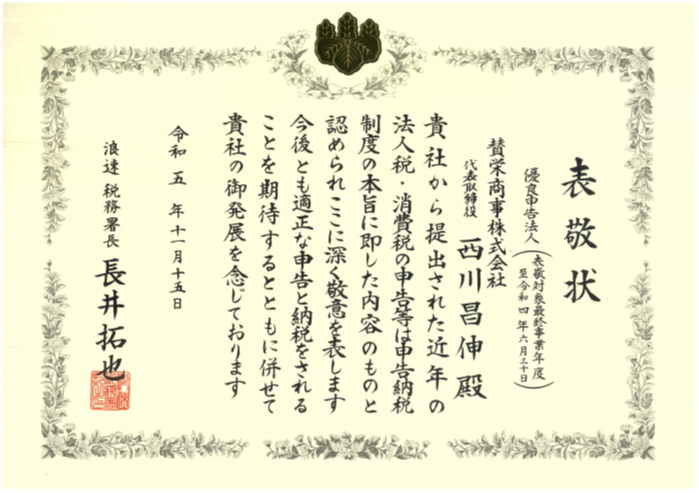 表敬状
優良申告法人
(表敬対象最終事業年度
至令和四年六月三十日)
賛栄商事株式会社
代表取締役 西川昌伸殿
貴社から提出された近年の
法人税・消費税の申告等は申告納税
制度の本旨に即した内容のものと
認められここに深く敬意を表します
今後とも適正な申告と納税をされる
ことを期待するとともに併せて
貴社の御発展を念じております
令和五年十一月十五日
浪速税務署長 長井拓也